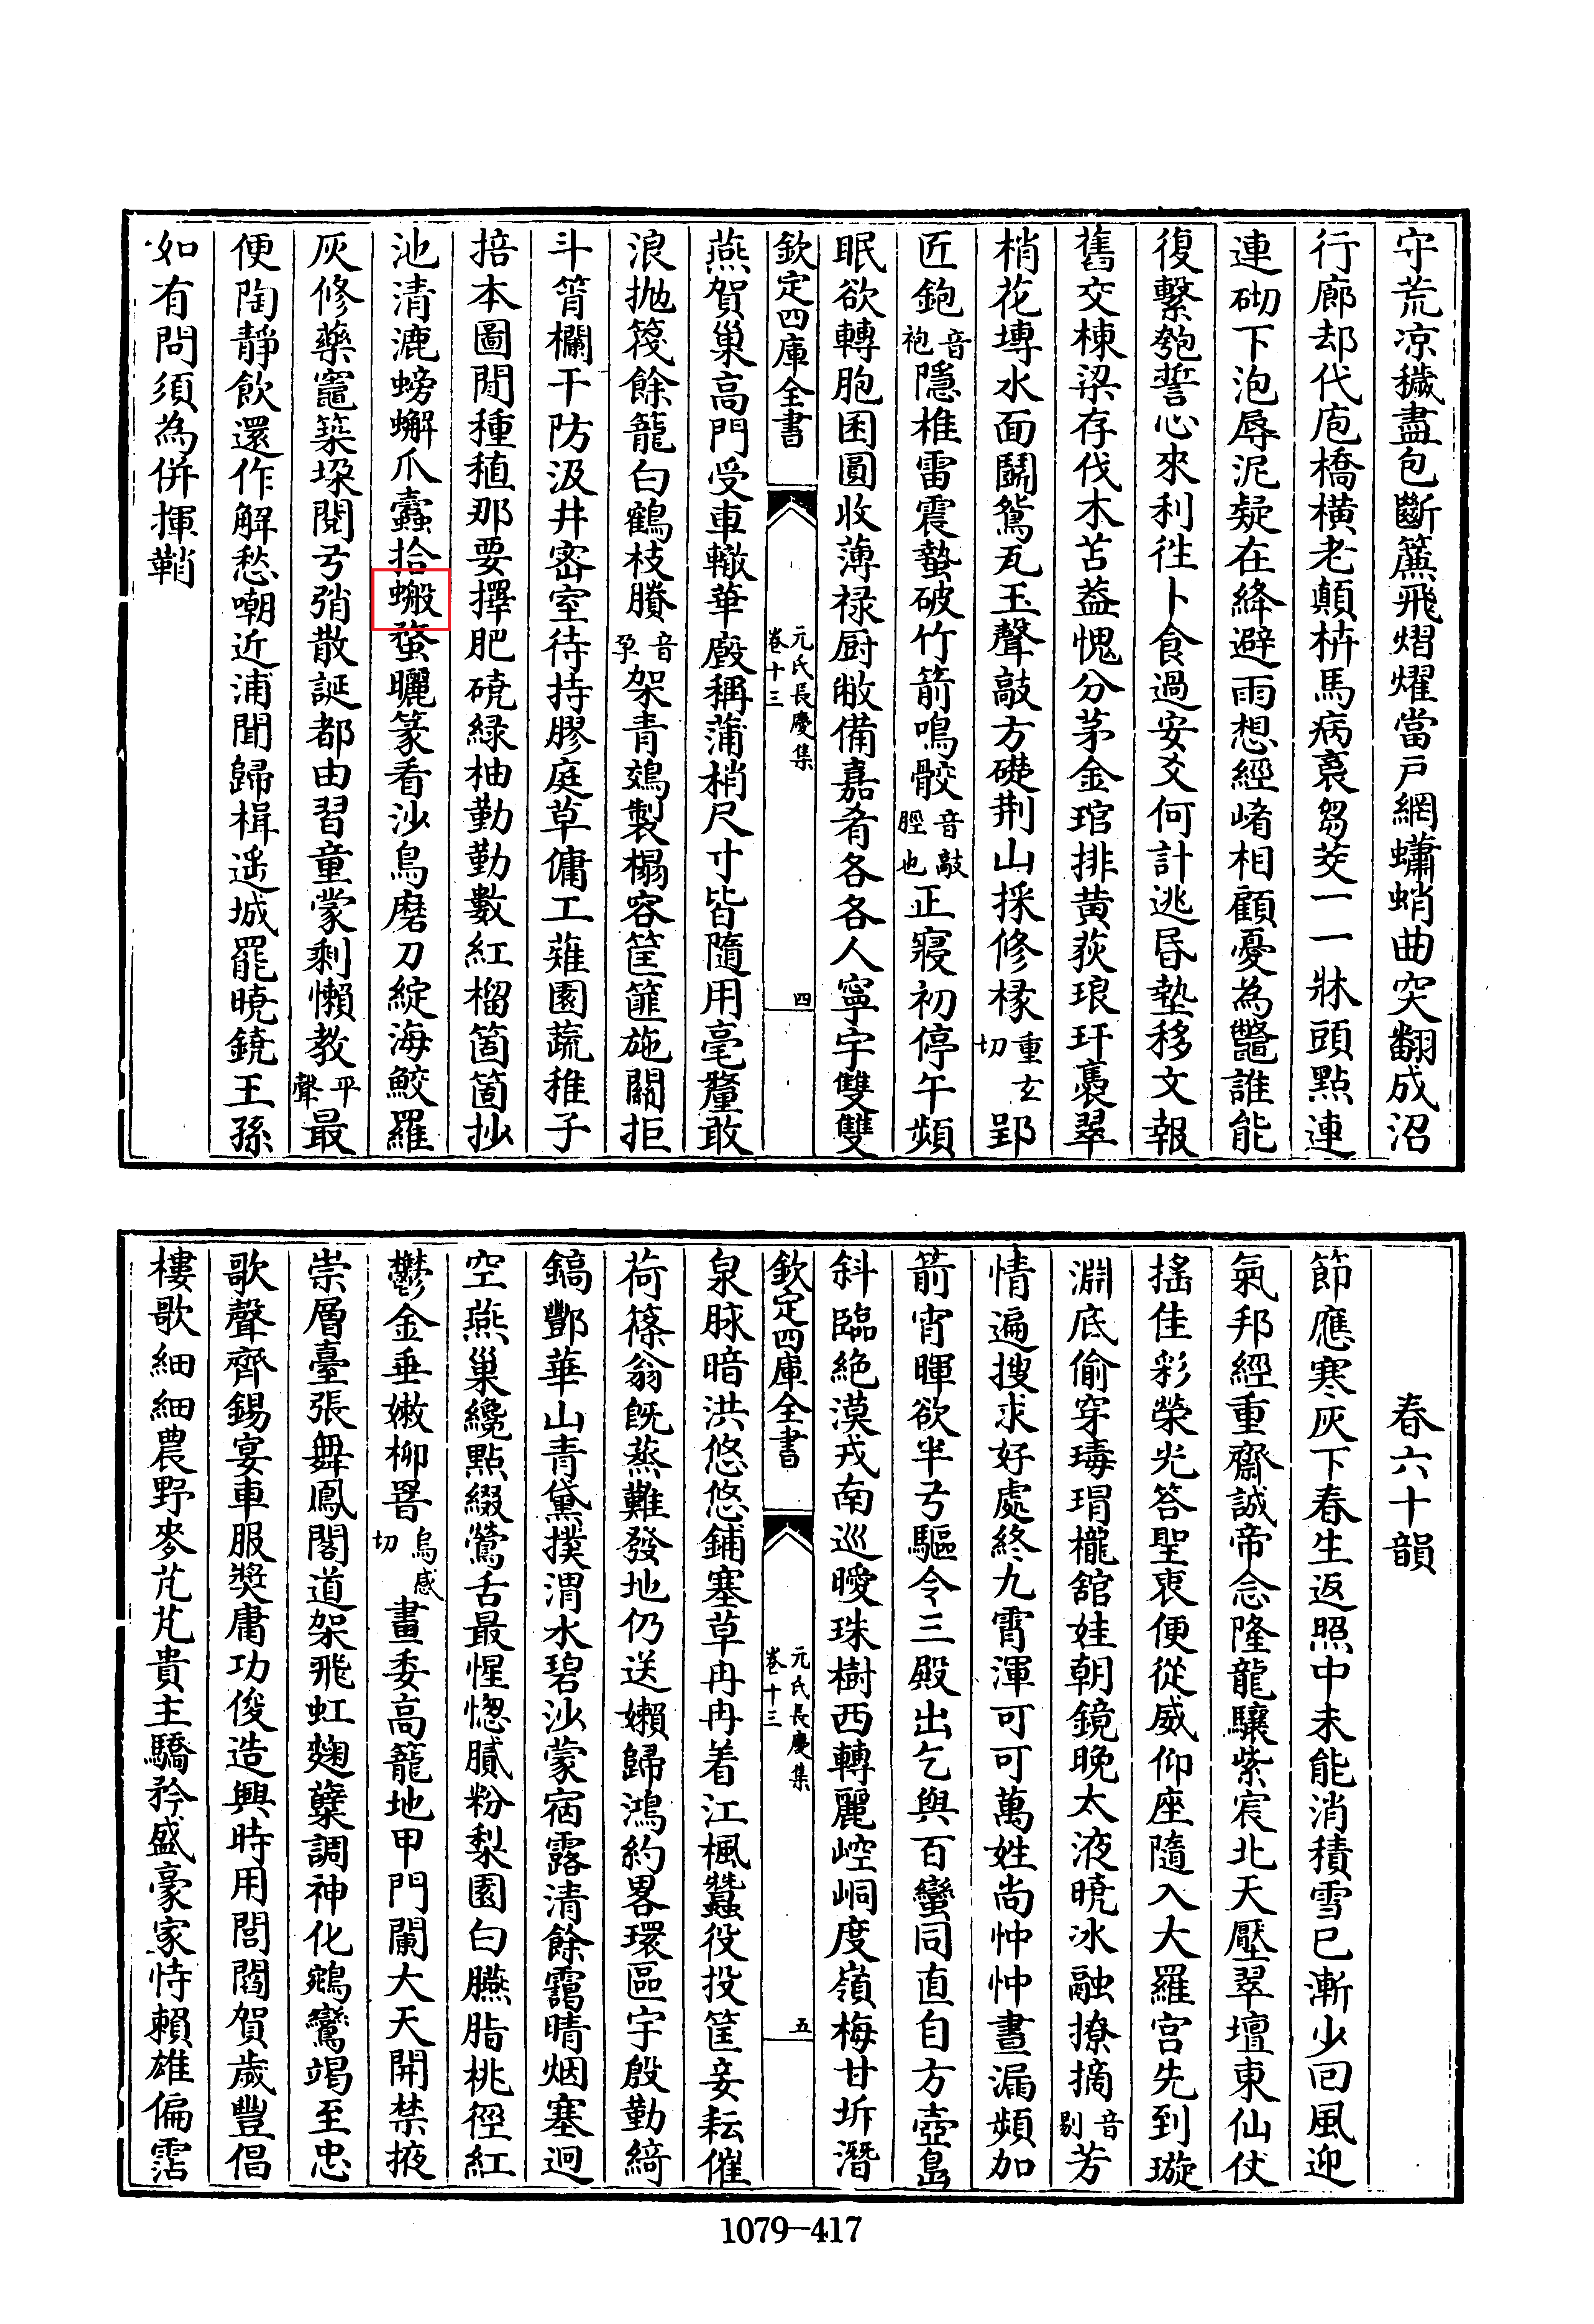 守荒凉穢盡包斷簾飛熠燿當戶網蠨蛸曲突翻成沼
行廊却代庖橋橫老顛枿馬病裛芻茭一一牀頭點連
連砌下泡辱泥疑在絳避雨想經崤相顧憂為鼈誰能
復繫匏誓心來利往卜食過安爻何計逃昏墊移文報
舊交棟梁存伐木苫葢愧分茅金琯排黃荻琅玕裛翠
梢花塼水面鬭鴛瓦玉聲敲方礎荆山採修椽重玄切郢
匠鉋音袍隱椎雷震蟄破竹箭鳴骹音敲脛也正寢初停午頻
眠欲轉胞囷圓收薄禄厨敝備嘉肴各各人寧宇雙雙
欽定四庫全書
元氏長慶集
卷十三
四
燕賀巢高門受車轍華廄稱蒲梢尺寸皆隨用毫釐敢
浪抛篾餘籠白鶴枝賸音孕架青䴔製榻容筐篚施關拒
斗筲欄干防汲井宻室待持膠庭草傭工薙園蔬稚子
掊本圖閒種植那要擇肥磽緑柚勤勤數紅榴箇箇抄
池清漉螃蠏爪蠹拾螌蝥曬篆看沙鳥磨刀綻海鮫羅
灰修藥竈築垜閱弓弰散誕都由習童蒙剩懶教平聲最
便陶靜飲還作解愁嘲近浦聞歸楫遥城罷曉鐃王孫
如有問須為併揮鞘
春六十韻
節應寒灰下春生返照中未能消積雪已漸少回風迎
氣邦經重齋誠帝念隆龍驤紫宸北天壓翠壇東仙仗
搖佳彩榮光答聖衷便從威仰座隨入大羅宫先到璇
淵底偷穿瑇瑁櫳舘娃朝鏡晚太液曉冰融撩摘音剔芳
情遍搜求好處終九霄渾可可萬姓尚忡忡晝漏頻加
箭宵暉欲半弓驅令三殿出乞與百蠻同直自方壺島
斜臨絶漠戎南巡曖珠樹西轉麗崆峒度嶺梅甘坼潛
欽定四庫全書
元氏長慶集
卷十三
五
泉脉暗洪悠悠鋪塞草冉冉着江楓蠶役投筐妾耘催
荷篠翁旣蒸難發地仍送嬾歸鴻約畧環區宇殷勤綺
鎬酆華山青黛撲渭水碧沙蒙宿露清餘靄晴烟塞迥
空燕巢纔點綴鶯舌最惺憁膩粉梨園白臙脂桃徑紅
鬱金垂嫩柳罯烏感切畫委高籠地甲門闌大天開禁掖
崇層臺張舞鳳閣道架飛虹麴糵調神化鵷鸞竭至忠
歌聲齊錫宴車服獎庸功俊造興時用閭閻賀歲豐倡
樓歌細細農野麥芃芃貴主驕矜盛豪家恃賴雄偏霑
1079-417